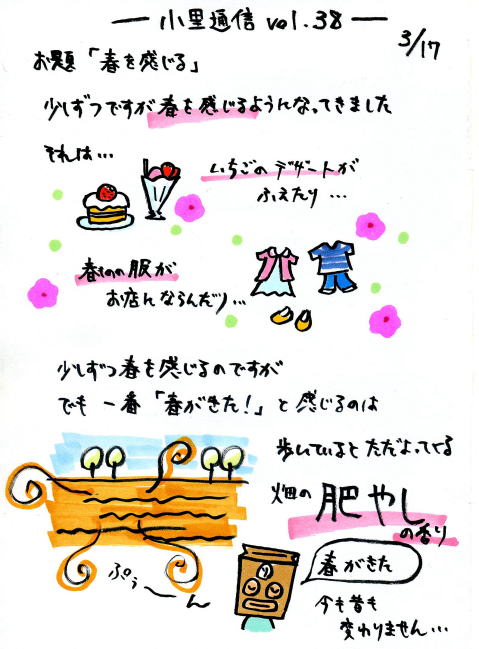 小里通信 vol.38
3/17
お題「春を感じる」
少しずつですが春を感じるようになってきました
それは…
いちごのデザートが
ふえたり…
春ものの服が
お店にならんだり…
少しずつ春を感じるのですが
でも一番「春がきた!」と感じるのは
歩いているとただよってくる
畑の肥やし
の香り
ぷぅ〜ん
春がきた
今も昔も
変わりません…